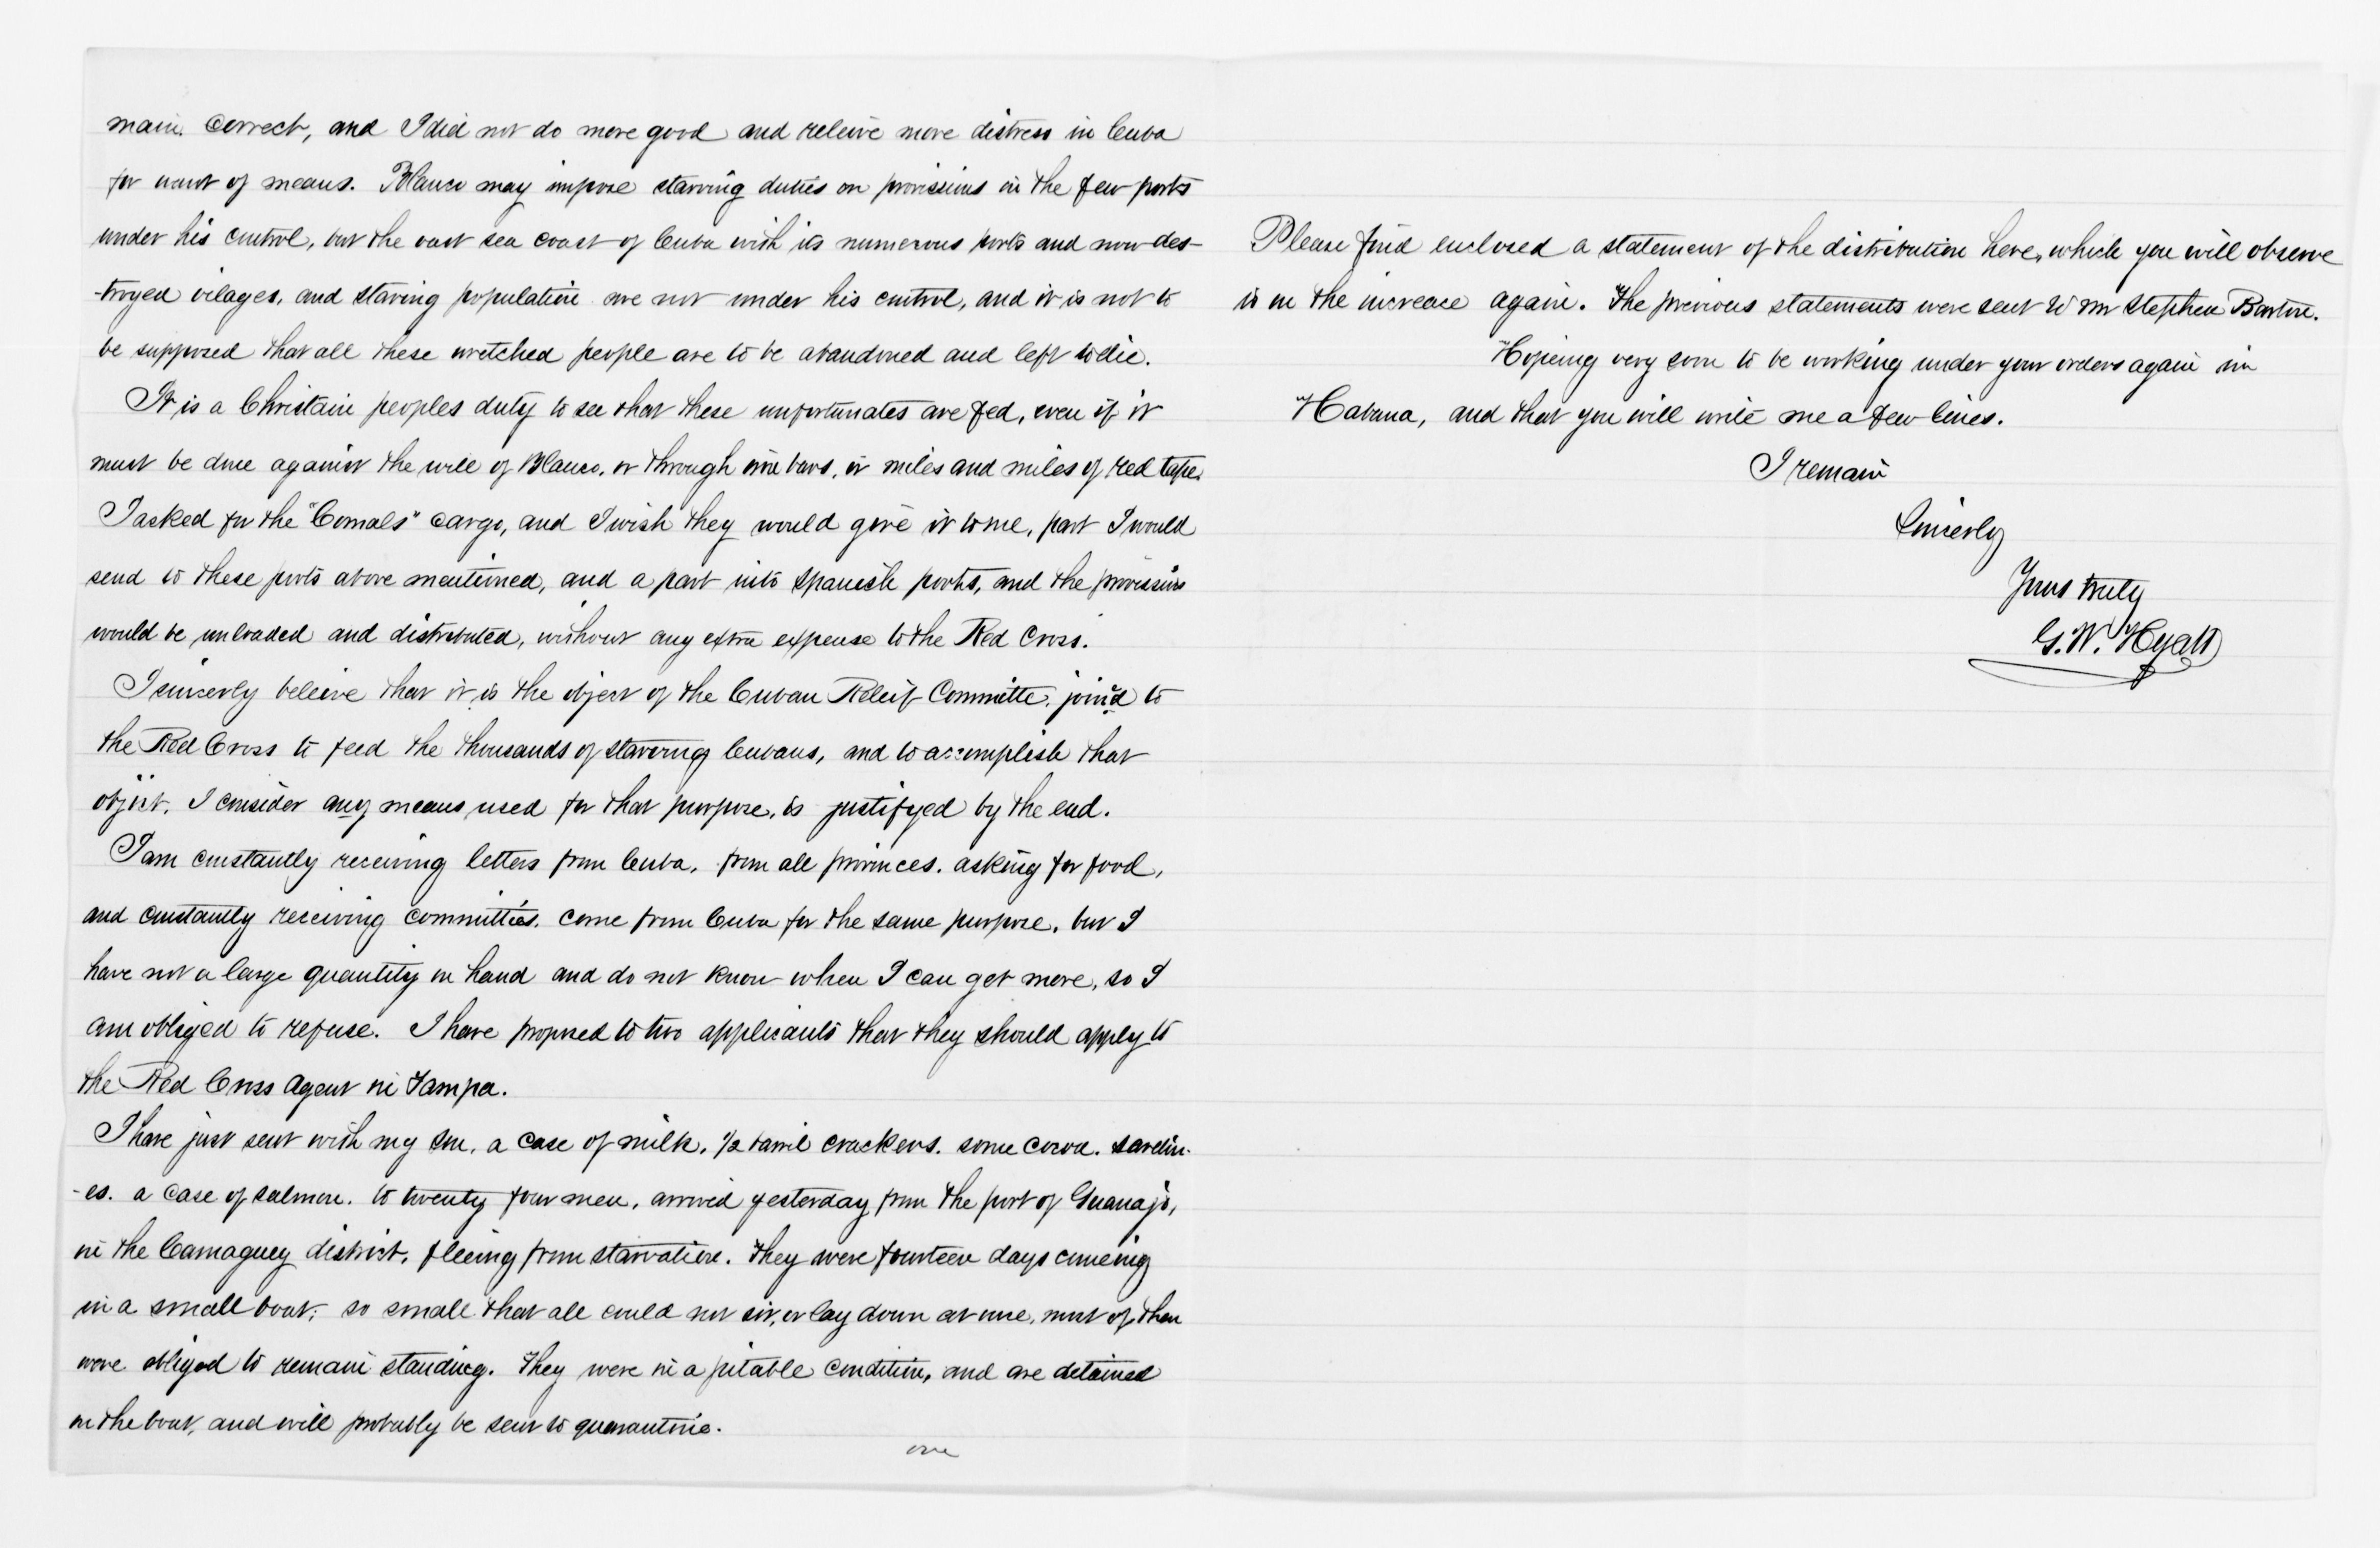 main correct, and I did not do more good and releive more distress in Cuba
for want of means. Blanco may impose starving duties on provissions in the few ports
under his control, but the vast sea coast of Cuba with its numerous ports and now des-
-troyed vilages, and staring population are not under his control, and it is not to
be supposed that all these wretched people are to be abandoned and left to die.
It is a Christain peoples duty to see that these unfortunates are fed, even if it
must be done against the will of Blanco, or through iron bars, or miles and miles of red tape.
I asked for the "Comals" cargo, and I wish they would give it to me, part I would
send to these ports above mentioned, and a part into Spanish ports, and the provissions
would be unloaded and distributed, without any extra expense to the Red Cross.
I sincerly beleive that it is the object of the Cuban Releif Committe, joind to
the Red Cross to feed the thousands of starving Cubans, and to accomplish that
object, I consider any means used for that purpose, is justifyed by the end.
I am constantly receiving letters from Cuba, from all provinces. asking for food,
and constantly receiving committies. come from Cuba for the same purpose, but I
have not a large quantity on hand and do not know when I can get more, so I
am obliged to refuse. I have proposed to two applicants that they should apply to
the Red Cross Agent in Tampa.
I have just sent with my son, a case of milk, 1/2 barril crackers. some cocoa. sardin-
-es. a case of salmon. to twenty four men, arrived yesterday from the port of Guanaja,
in the Camaguey district, fleeing from starvation. They were fourteen days comeing
in a small boat; so small that all could not sit, or lay down at once, most of them
were obliged to remain standing. They were in a pitable condition, and are detained
on the boat, and will probably be sent to quarantine.
over
Please find enclosed a statement of the distribution here, which you will observe
is on the increase again. The previous statements were sent to Mr Stephen Barton.
Hopeing very soon to be working under your orders again in
Habana, and that you will write me a few lines.
I remain
Sincerly
Yours truly
G. W. Hyatt